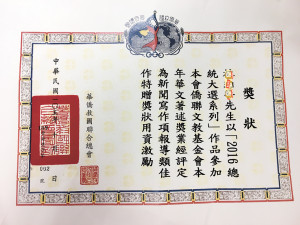 獎狀
先生以「2016總
統大選系列」作品參加
本會僑聯文教基金會本
年華文著述獎業經評定
為新聞寫作項報導類佳
作特贈獎狀用資激勵
華僑救國聯合總會
中華民國
日